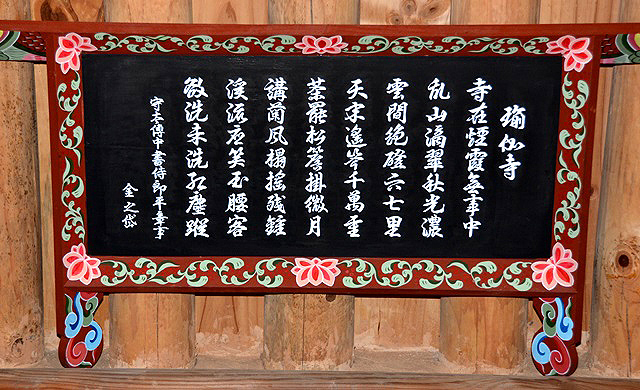 瑜伽寺
寺在煙霞無事中
乱山滴翠秋光濃
雲間絶磴六七里
天末遙岑千萬重
茶罷松簷掛微月
講闌風榻搖殘鍾
溪流應笑玉腰客
欲洗未洗紅塵蹤
守太傅中書侍郎平章事
金之岱